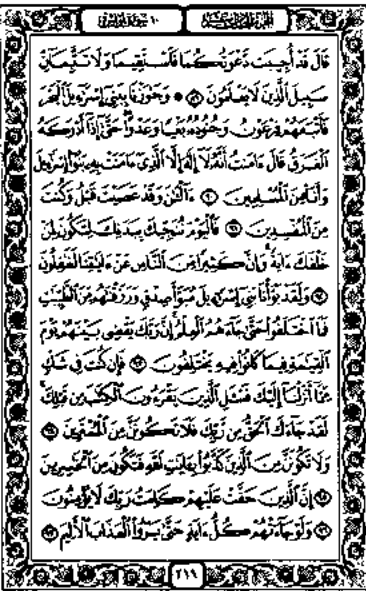 الجزء الحادي عشر
١٠ سورة يونس
قَالَ قَدْ أُجِيبَت دَّعْوَتُكُمَا فَٱسْتَقِيمَا وَلَا تَتَّبِعَآنِّ
سَبِيلَ ٱلَّذِينَ لَا يَعْلَمُونَ ٨٩ ۞ وَجَٰوَزْنَا بِبَنِىٓ إِسْرَٰٓءِيلَ ٱلْبَحْرَ
فَأَتْبَعَهُمْ فِرْعَوْنُ وَجُنُودُهُۥ بَغْيًا وَعَدْوًا حَتَّىٰٓ إِذَآ أَدْرَكَهُ
ٱلْغَرَقُ قَالَ ءَامَنتُ أَنَّهُۥ لَآ إِلَٰهَ إِلَّا ٱلَّذِىٓ ءَامَنَتْ بِهِۦ بَنُوٓا۟ إِسْرَٰٓءِيلَ
وَأَنَا۠ مِنَ ٱلْمُسْلِمِينَ ٩٠ ءَآلْـَٰٔنَ وَقَدْ عَصَيْتَ قَبْلُ وَكُنتَ
مِنَ ٱلْمُفْسِدِينَ ٩١ فَٱلْيَوْمَ نُنَجِّيكَ بِبَدَنِكَ لِتَكُونَ لِمَنْ
خَلْفَكَ ءَايَةً وَإِنَّ كَثِيرًا مِّنَ ٱلنَّاسِ عَنْ ءَايَٰتِنَا لَغَٰفِلُونَ
٩٢ وَلَقَدْ بَوَّأْنَا بَنِىٓ إِسْرَٰٓءِيلَ مُبَوَّأَ صِدْقٍ وَرَزَقْنَٰهُم مِّنَ ٱلطَّيِّبَٰتِ
فَمَا ٱخْتَلَفُوا۟ حَتَّىٰ جَآءَهُمُ ٱلْعِلْمُ إِنَّ رَبَّكَ يَقْضِى بَيْنَهُمْ يَوْمَ
ٱلْقِيَٰمَةِ فِيمَا كَانُوا۟ فِيهِ يَخْتَلِفُونَ ٩٣ فَإِن كُنتَ فِى شَكٍّ
مِّمَّآ أَنزَلْنَآ إِلَيْكَ فَسْـَٔلِ ٱلَّذِينَ يَقْرَءُونَ ٱلْكِتَٰبَ مِن قَبْلِكَ
لَقَدْ جَآءَكَ ٱلْحَقُّ مِن رَّبِّكَ فَلَا تَكُونَنَّ مِنَ ٱلْمُمْتَرِينَ ٩٤
وَلَا تَكُونَنَّ مِنَ ٱلَّذِينَ كَذَّبُوا۟ بِـَٔايَٰتِ ٱللَّهِ فَتَكُونَ مِنَ ٱلْخَٰسِرِينَ
٩٥ إِنَّ ٱلَّذِينَ حَقَّتْ عَلَيْهِمْ كَلِمَتُ رَبِّكَ لَا يُؤْمِنُونَ
٩٦ وَلَوْ جَآءَتْهُمْ كُلُّ ءَايَةٍ حَتَّىٰ يَرَوُا۟ ٱلْعَذَابَ ٱلْأَلِيمَ ٩٧
٢١٩